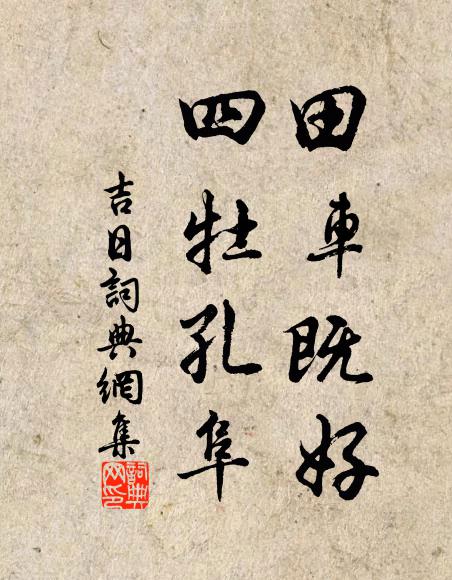 田車既好
四牡孔阜
吉日詞典網集
詞典網印